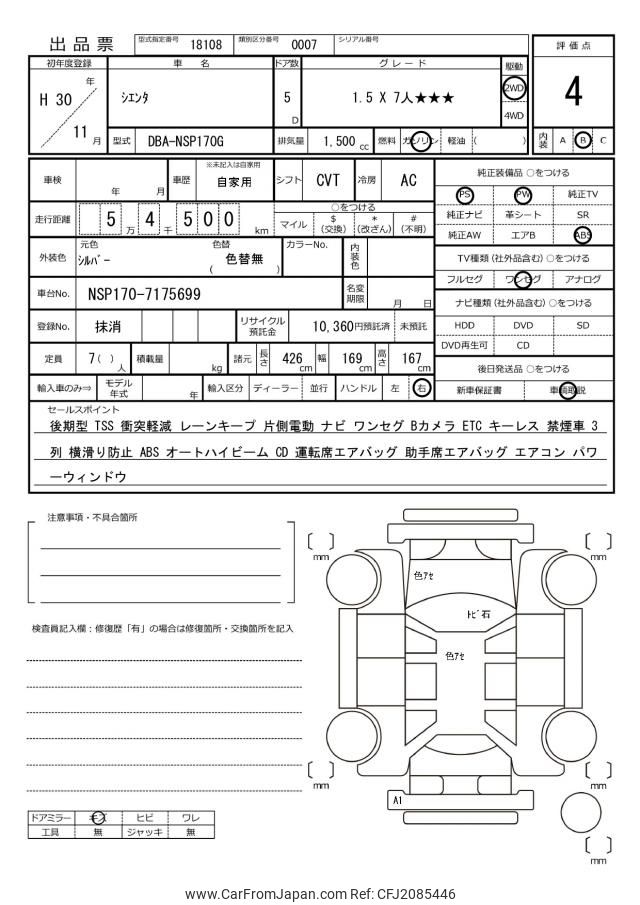 出品票
型式指定番号 18108 類別区分番号 0007 シリアル番号
評価点
初年度登録 車名 ドア数 グレード 駆動
H 30 年 11 月
シエンタ
5 D
1.5 X 7人★★★
2WD
4WD
4
型式 DBA-NSP170G 排気量 1,500 cc 燃料 ガソリン 軽油 ( )
内装 A B C
車検 年 月
車歴 ※未記入は自家用 自家用
シフト CVT 冷房 AC
走行距離 5 万 4 千 5 0 0 km
○をつける
マイル $(交換) *(改ざん) #(不明)
外装色 元色 シルバー 色替 ( 色替無 )
カラーNo. 内装色
車台No. NSP170-7175699 名変期限 月 日
登録No. 抹消 リサイクル預託金 10,360円預託済 未預託
定員 7( )人 積載量 kg 諸元 長さ 426 cm 幅 169 cm 高さ 167 cm
輸入車のみ⇒ モデル年式 年 輸入区分 ディーラー 並行 ハンドル 左 右
純正装備品 ○をつける
PS PW 純正TV
純正ナビ 革シート SR
純正AW エアB ABS
TV種類 (社外品含む) ○をつける
フルセグ ワンセグ アナログ
ナビ種類 (社外品含む) ○をつける
HDD DVD SD
DVD再生可 CD
後日発送品 ○をつける
新車保証書 車輌取説
セールスポイント
後期型 TSS 衝突軽減 レーンキープ 片側電動 ナビ ワンセグ Bカメラ ETC キーレス 禁煙車 3
列 横滑り防止 ABS オートハイビーム CD 運転席エアバッグ 助手席エアバッグ エアコン パワ
ーウィンドウ
注意事項・不具合箇所
検査員記入欄：修復歴「有」の場合は修復箇所・交換箇所を記入
ドアミラー キズ ヒビ ワレ
工具 無 ジャッキ 無
mm
mm
色アセ
トビ石
色アセ
mm
mm
A1
mm
www.CarFromJapan.com Ref: CFJ2085446